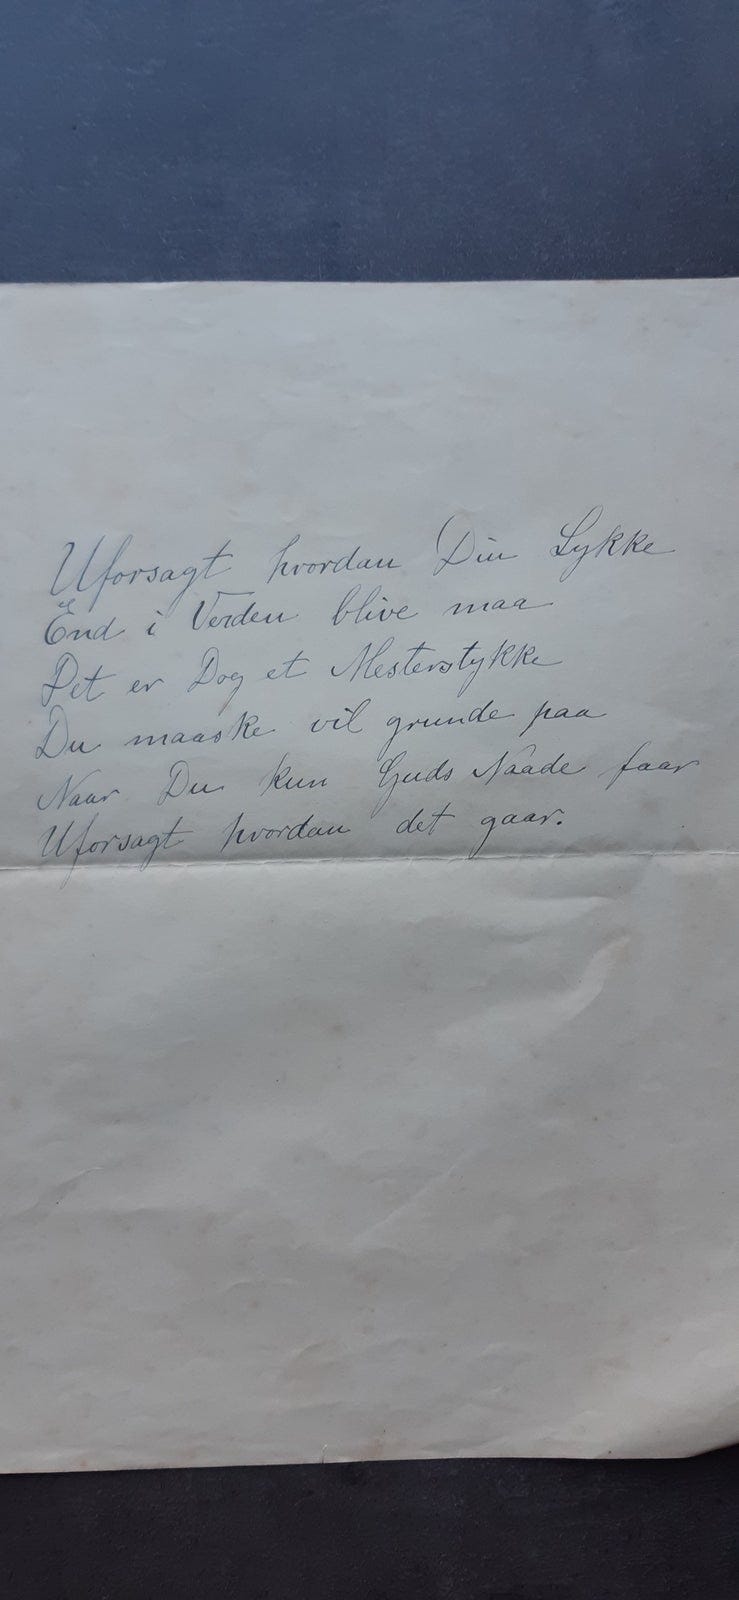 Uforsagt hvordan Din Lykke
End i Verden blive maa
Det er Dog et Mesterstykke
Du maaske vil grunde paa
Naar Du kun Guds Naade faar
Uforsagt hvordan det gaar.